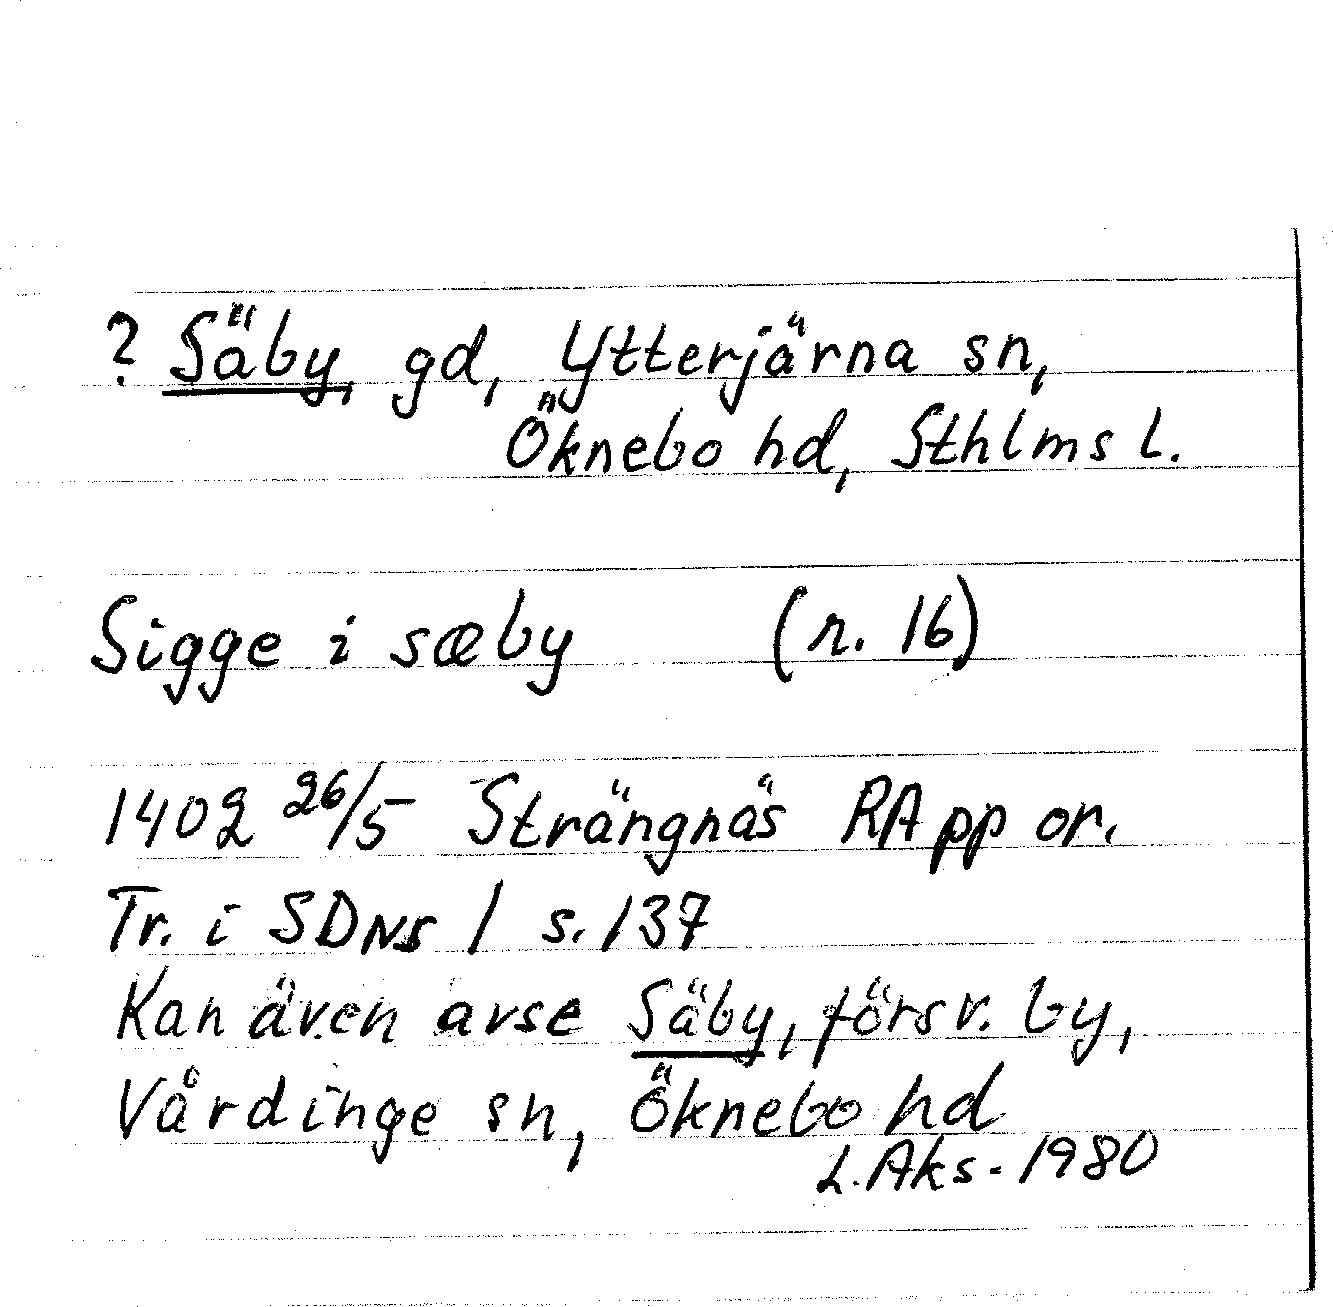 ? Säby, gd, Ytterjärna sn,
Öknebo hd, Sthlms l.
Sigge i sæby (r. 16)
1402 26/5 Strängnäs RA pp or.
Tr. i SDNS 1 s. 137
Kan även avse Säby, försv. by,
Vårdinge sn, Öknebo hd
L. Aks. 1980